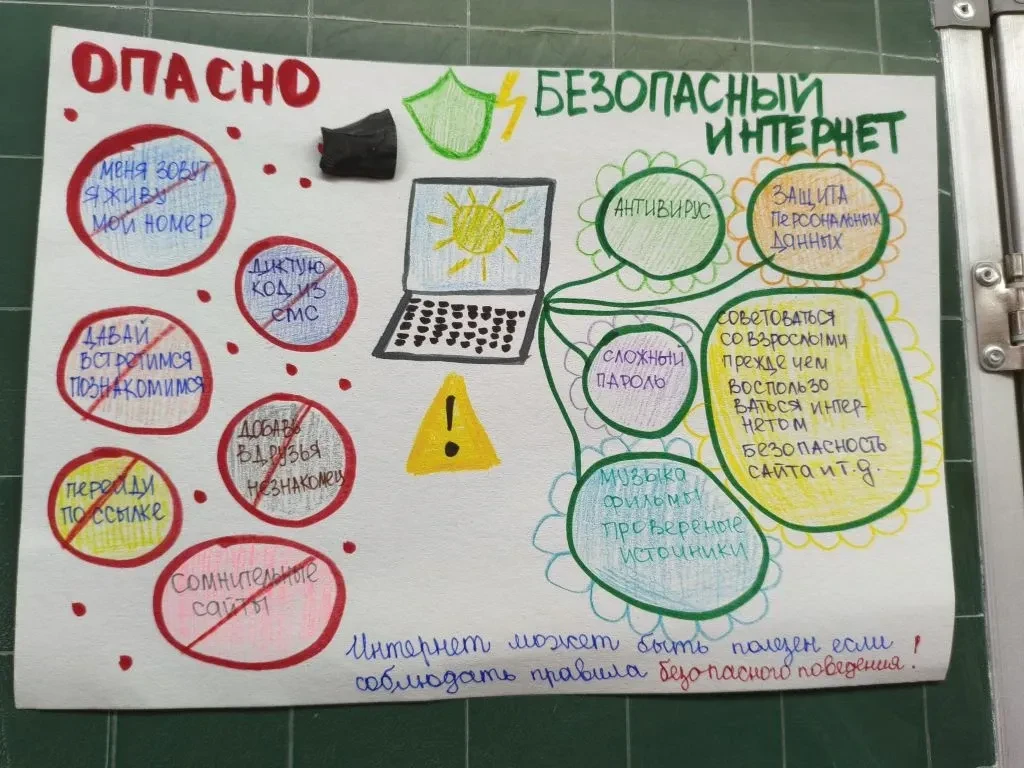 ОПАСНО
БЕЗОПАСНЫЙ
ИНТЕРНЕТ
МЕНЯ ЗОВУТ
Я ЖИВУ
МОЙ НОМЕР
ДИКТУЮ
КОД ИЗ
СМС
ДАВАЙ
ВСТРЕТИМСЯ
ПОЗНАКОМИМСЯ
ДОБАВЬ
В ДРУЗЬЯ
НЕЗНАКОМЕЦ
ПЕРЕЙДИ
ПО ССЫЛКЕ
СОМНИТЕЛЬНЫЕ
САЙТЫ
АНТИВИРУС
ЗАЩИТА
ПЕРСОНАЛЬНЫХ
ДАННЫХ
СЛОЖНЫЙ
ПАРОЛЬ
СОВЕТОВАТЬСЯ
СО ВЗРОСЛЫМИ
ПРЕЖДЕ ЧЕМ
ВОСПОЛЬЗО
ВАТЬСЯ ИНТЕР-
НЕТОМ
БЕЗОПАСНОСТЬ
САЙТА И Т.Д.
МУЗЫКА
ФИЛЬМЫ
ПРОВЕРЕНЫЕ
ИСТОЧНИКИ
!
Интернет может быть полезен если
соблюдать правила безопасного поведения!